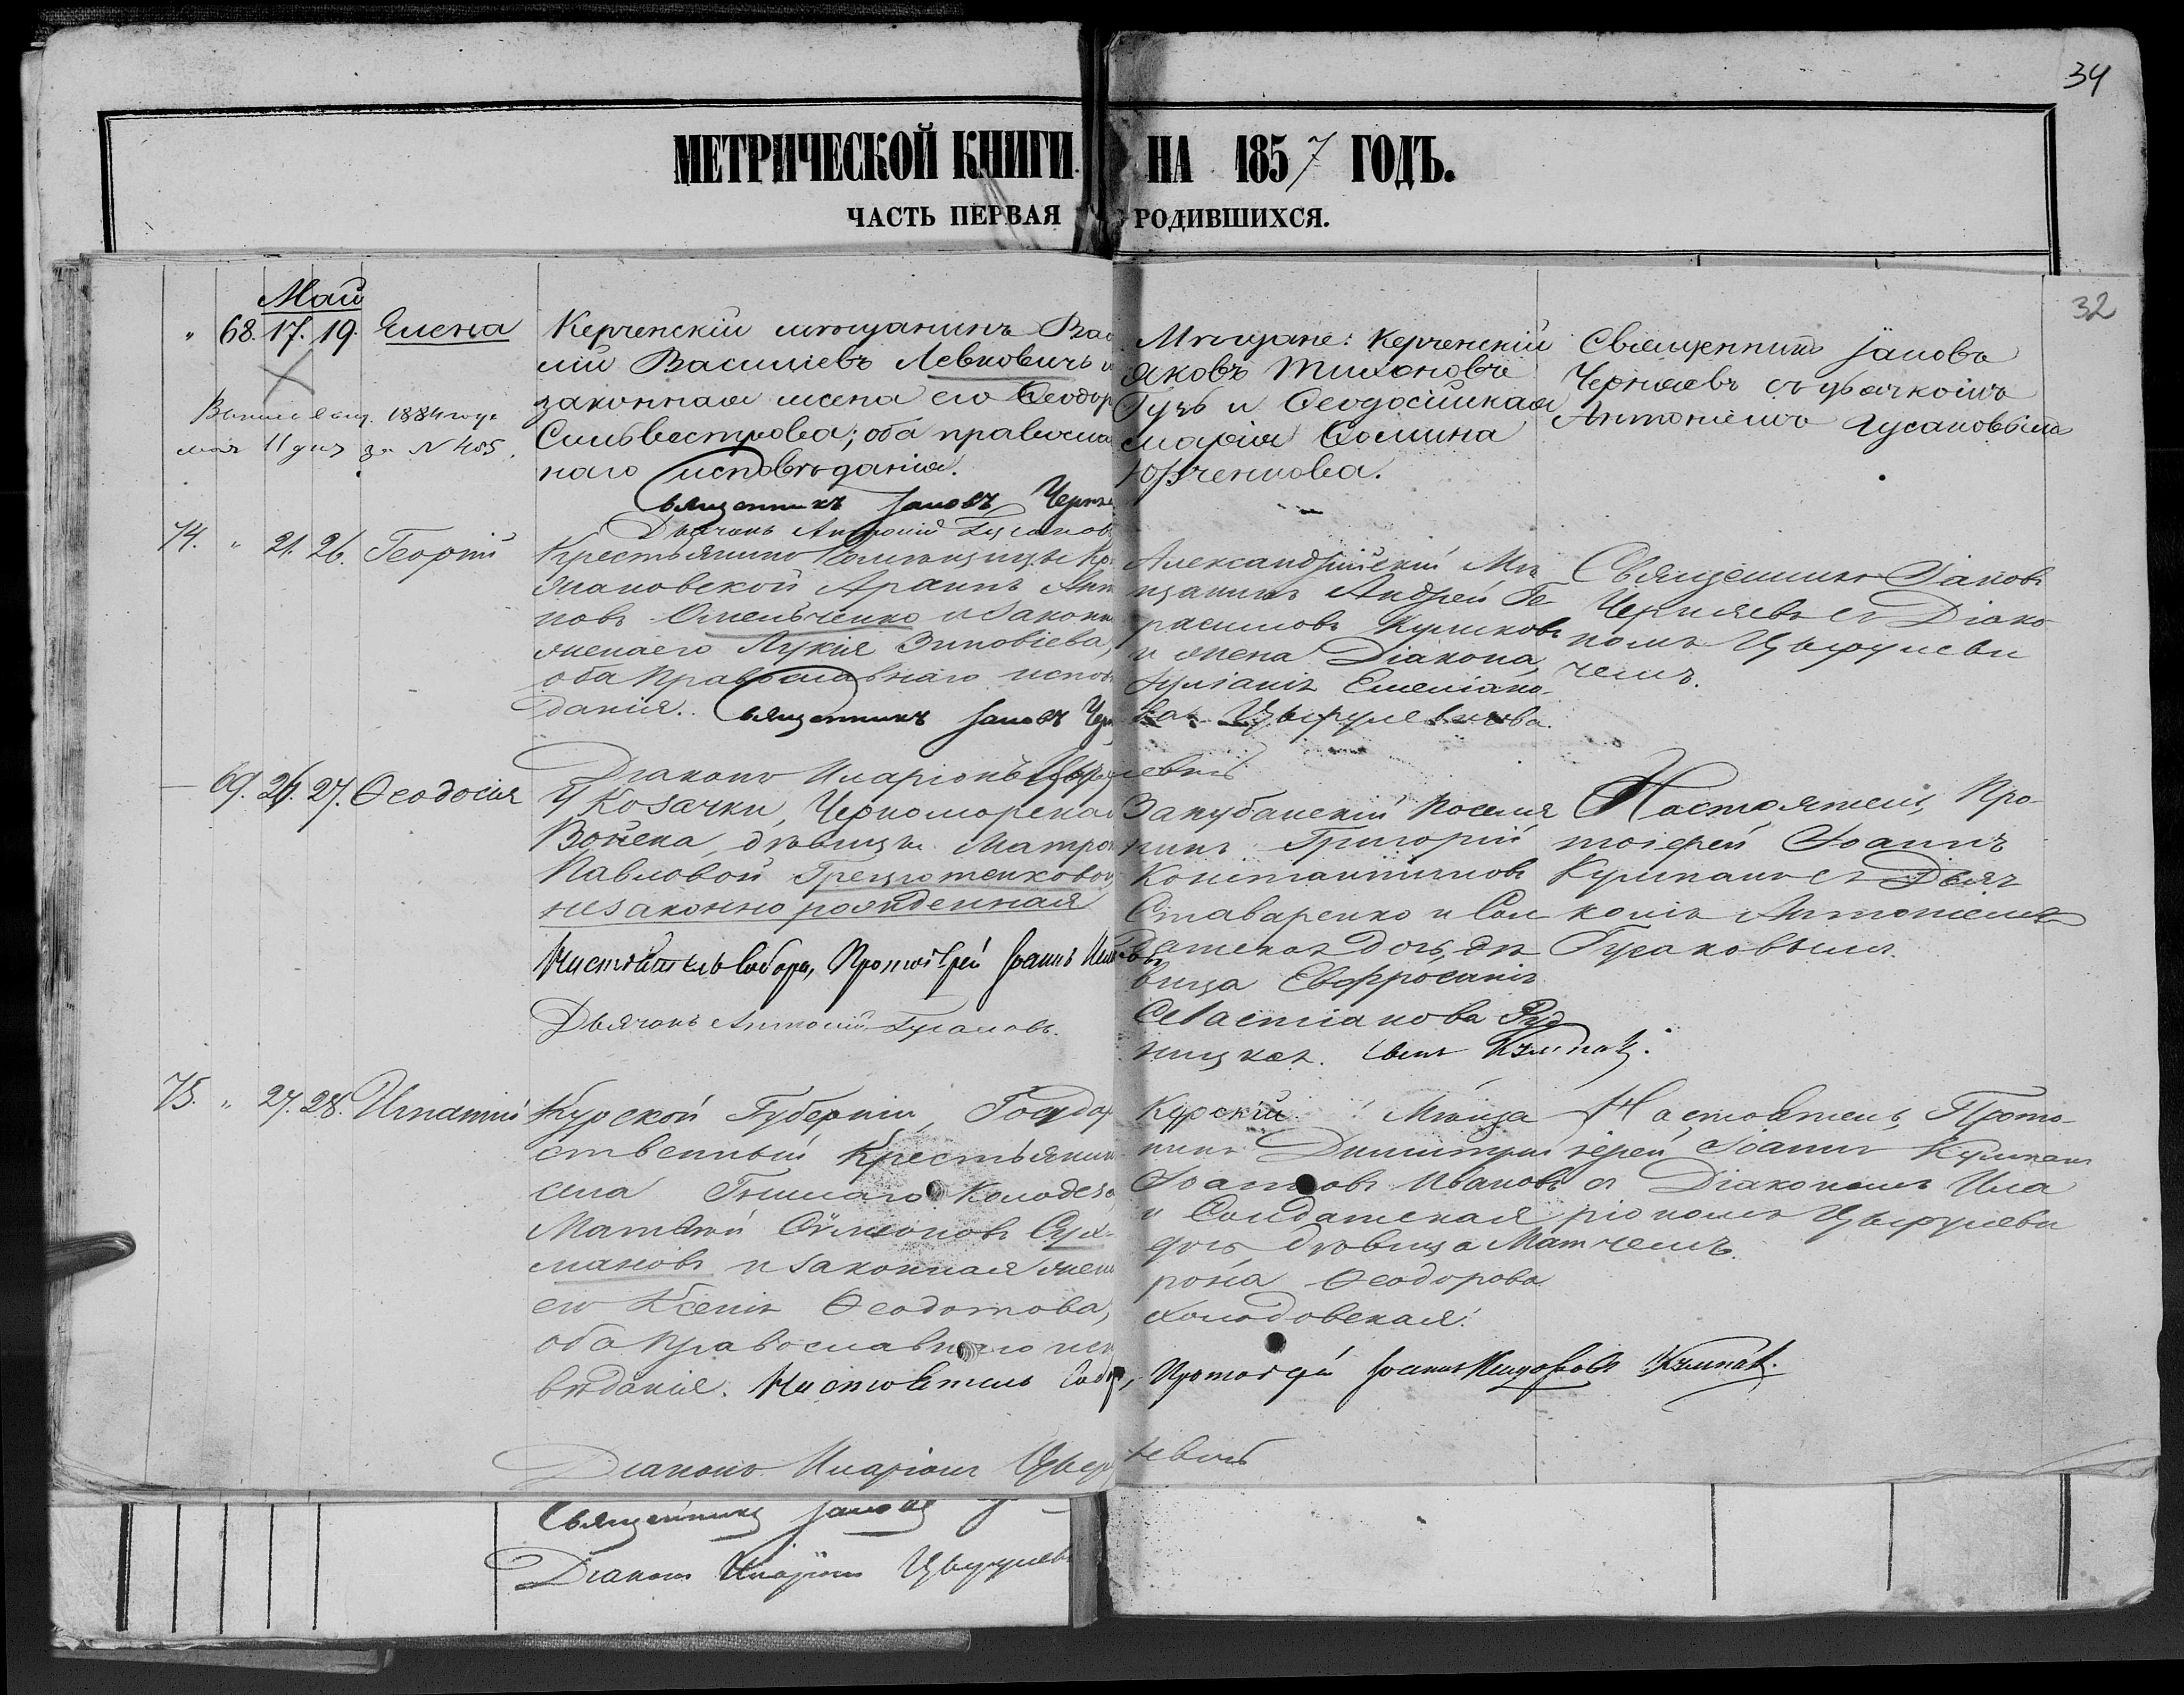 34
МЕТРИЧЕСКОЙ КНИГИ НА 1857 ГОДЪ.
ЧАСТЬ ПЕРВАЯ РОДИВШИХСЯ.
32
Май
" 68. 17. 19. Елена
1884 года
мая 11 дня за N 405.
Керченскій мѣщанинъ Васи
лій Васильевъ Левковичъ и
законная жена его Ѳеодор
Сильвестрова; оба правосла
наго исповѣданія.
Священникъ Іаковъ Черня
Дьячокъ Антоній Гусаковъ
Мѣщане: Керченскій
Яковъ Тихоновъ
Гузь и Ѳеодосійская
Марія Ѳомина
Юрченкова.
Священникъ Іаковъ
Черняевъ съ дьячкомъ
Антоніемъ Гусаковымъ
74. " 21. 26. Георгій
Крестьянинъ
новъ Омельченко и законн
жена его Лукія Зиновіева,
оба православнаго испов
данія. Священникъ Іаковъ Чер
Александрійскій Мѣ
щанинъ Андрей Ге
расимовъ Куликовъ
и жена Діакона,
Іуліанія Емеліано
ва Цыцулевичева.
Священникъ Іаковъ
Черняевъ съ Діако
номъ Цыцулеви
чемъ.
Діаконъ Иларіонъ Цыцулевичъ
— 69. 24. 27. Ѳеодосія
У Козачки, Черноморскаго
Войска, дѣвицы Матро
Павловой
незаконно рожденная
Настоятель Собора, Протоіерей Іоаннъ
Дьячокъ Антоній Гусаковъ.
Закубанскій Поселя
нинъ Григорій
Константиновъ
Ставаренко и Сол
датская дочь, дѣ
вица Евфросинія
Севастіанова Руд
ницкая.
Настоятель, Про
тоіерей Іоаннъ
Кумпанъ съ Дьяч
комъ Антоніемъ
Гусаковымъ.
75. " 27. 28. Игнатій
Курской Губерніи, Госудор
ственный Крестьянин
села Гнилаго Колодезя
Матѳей Сѵмеоновъ Сух
мановъ и законная жена
его Ксенія Ѳеодотова,
оба православнаго исп
вѣданія. Настоятель Собор, Протоіерей Іоаннъ Кумпанъ.
Діаконъ Иларіонъ Цыцулевичъ
Курскій Мѣща
нинъ Димитрій
Іоанновъ Ивановъ
и Солдатская
дочь дѣвица Мат
рона Ѳеодорова
Холодовская.
Настоятель, Прото
іерей Іоаннъ Кумпанъ
съ Діакономъ Ила
ріономъ Цыцулеви
чемъ.
Священникъ Іаковъ
Діаконъ Иларіонъ Цыцулев